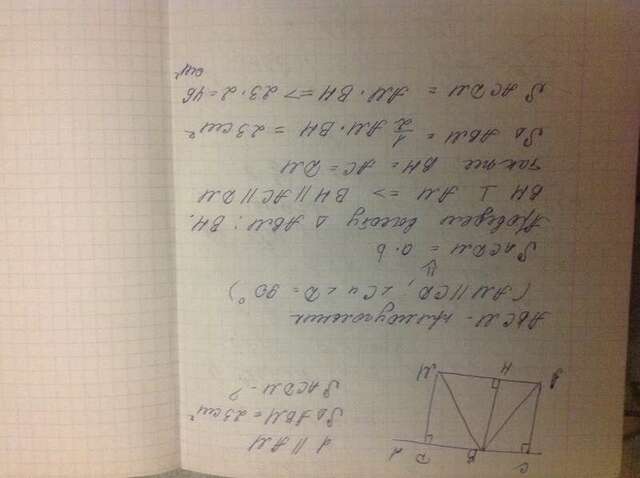 C B D d
A H M
d || AM
S△ ABM = 23 см²
S ACDM - ?
АВСМ - прямоугольник
(AM || CD, ∠C и ∠D = 90°)
⇓
S ACDM = a · b
Проведем высоту △ ABM : BH.
BH ⊥ AM => BH || AC || DM
также BH = AC = DM
S△ ABM = 1/2 AM · BH = 23 см²
S ACDM = AM · BH => 23 · 2 = 46
см²